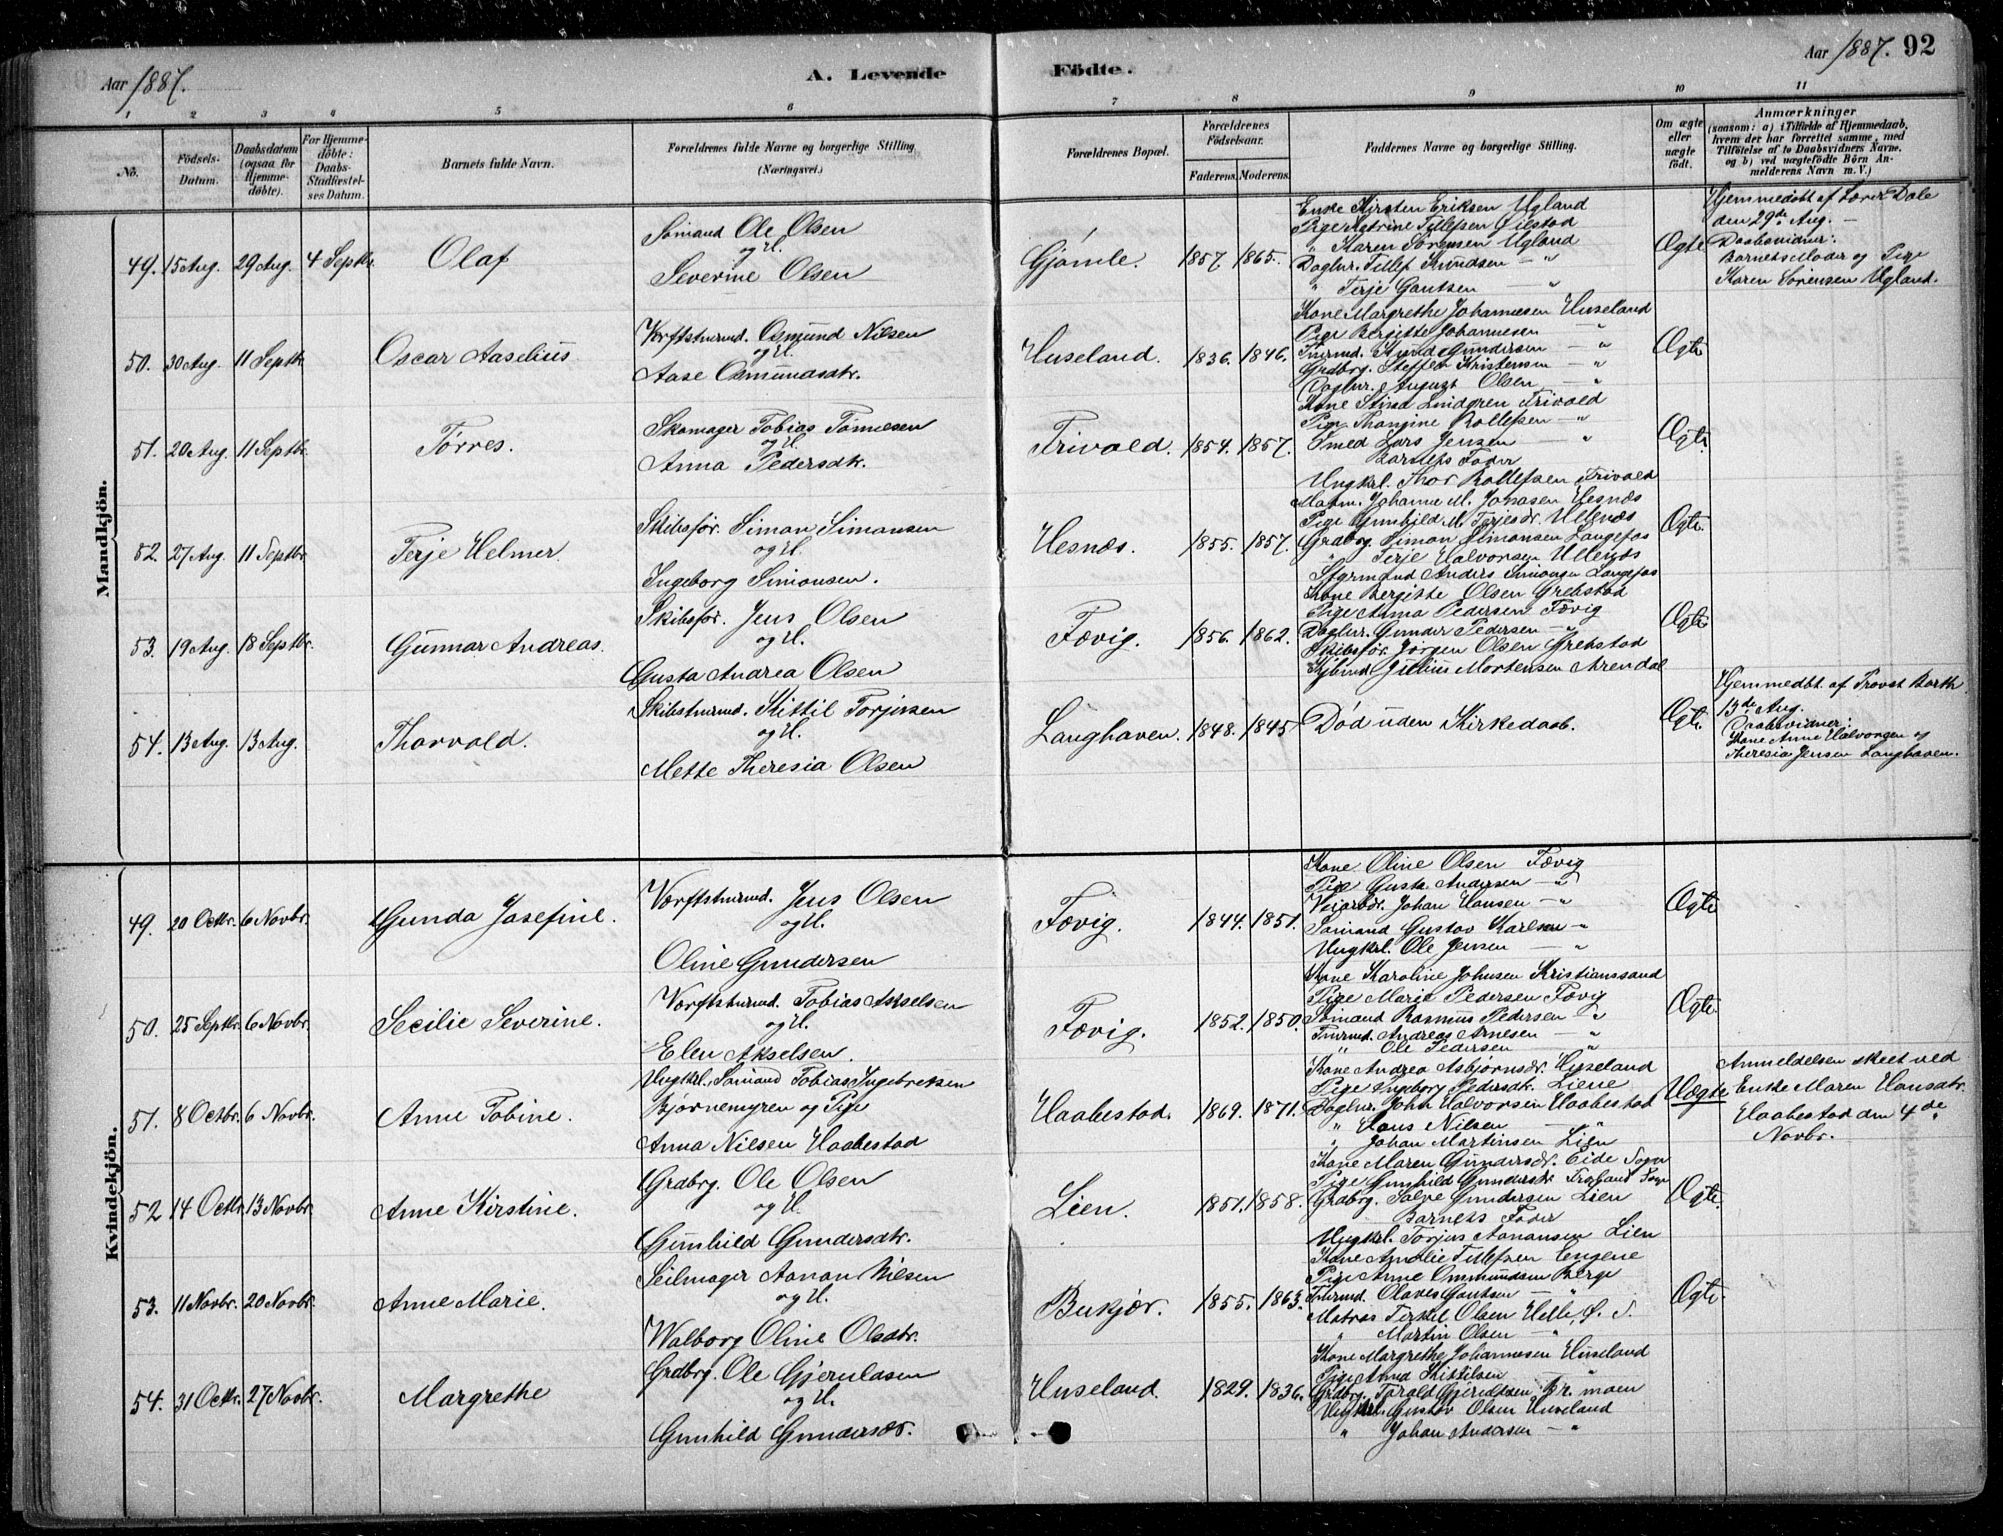 Aar 1887.
A. Levende Födte.
Aar 1887. 92
1 2 3 4 5 6 7 8 9 10 11
No.
Födsels-Datum.
Daabsdatum (ogsaa for Hjemmedöbte).
For Hjemmedöbte: Daabs-Stadfæstelses Datum.
Barnets fulde Navn.
Forældrenes fulde Navne og borgerlige Stilling.
(Næringsvei.)
Forældrenes Bopæl.
Forældrenes Födselsaar.
Faderens. Moderens.
Faddernes Navne og borgerlige Stilling.
Om ægte eller uægte födt.
Anmærkninger
(saasom: a) i Tilfælde af Hjemmedaab, hvem der har forrettet samme, med Tilföielse af to Daabsvidners Navne, og b) ved uægtefödte Börn Anmelderens Navn m. V.)
Mandkjön.
49. 15 Aug. 29 Aug. 4 Septbr. Olaf
Sömand Ole Olsen
og H.
Severine Olsen
Gjömle. 1857. 1865.
Enke Kirsten Eriksen Ugland
Pige Katrine Tellefsen Öilestad
" Karen Sörensen Ugland
Daglnr. Tellef Knudsen — "
" Terje Gautsen — "
Ægte
Hjemmedöbt af Lærer Dale
den 29de Aug. —
Daabsvidner:
Barnets Moder og Pige
Karen Sörensen Ugland.
50. 30 Aug. 11 Septbr. Oscar Aaselius
Værftstmrmd. Osmund Nilsen
og H.
Aase Osmundsdtr.
Huseland. 1836. 1846.
Kone Margrethe Johannesen Huseland
Pige Bergitte Johannesen — "
Tmrmd. Knud Gundersen — "
Grdbrg. Steffen Kristensen — "
Daglnr. August Olsen — "
Ægte
51. 20 Aug. 11 Septbr. Torres.
Skomager Tobias Tönnesen
og H.
Anna Pedersdtr.
Trivold. 1854. 1857.
Kone Stina Lindgren Trivold
Pige Thomine Rollefsen "
Smed Lars Jensen — "
Barnets Fader
Ungkrl. Thor Rollefsen Trivold
Ægte
52. 27 Aug. 11 Septbr. Terje Helmer
Skibsför. Simon Simonsen
og H.
Ingeborg Simonsen.
Hesnæs. 1855. 1857.
Madm. Johanne M. Jonasen Hesnæs
Pige Gunhild M. Terjesdr. Ullenæs
Grdbrg. Simon Simonsen Langefos
" Terje Halvorsen Ullenæs
Styrmand Anders Simonsen Langefos
Ægte
53. 19 Aug. 18 Septbr. Gunnar Andreas.
Skibsför. Jens Olsen
og H.
Gusta Andrea Olsen
Fævig. 1856. 1862.
Kone Bergitte Olsen Grebstad
Pige Anna Pedersen Fævig
Daglnr. Gunder Pedersen — "
Skibsför. Jörgen Olsen Grebstad
Kjbmd. Julius Mortensen Arendal
Ægte
54. 13 Aug. 13 Aug. Thorvald.
Skibstmrmd. Kittil Torjersen
og H.
Mette Theresia Olsen
Langhaven. 1848. 1845
Död uden Kirkedaab.
Ægte
Hjemmedbt. af Provst Barth
13de Aug.
Daabsvidner:
Kone Anne Halvorsen og
Theresia Jensen Langhaven.
Kvindekjön.
49. 20 Octbr. 6 Novbr. Gunda Josefine.
Værftstmrmd. Jens Olsen
og H.
Oline Gundersen
Fævig. 1844. 1851.
Kone Oline Olsen Fævig
Pige Gusta Andersen — "
Veiarbdr. Johan Hansen — "
Sömand Gustav Karlsen "
Ungkrl. Ole Jensen — "
Ægte
50. 25 Septbr. 6 Novbr. Secilie Severine.
Værftstmrmd. Tobias Akselsen
og H.
Elen Akselsen.
Fævig. 1852. 1850.
Kone Karoline Johnsen Kristianssand
Pige Marie Pedersen Fævig
Sömand Rasmus Pedersen "
Tmrmd. Andreas Arnesen — "
" Ole Pedersen — "
Ægte
51. 8 Octbr. 6 Novbr. Anne Tobine.
Ungkrl. Sömand Tobias Ingebretsen
Bjørnemyren og Pige
Anna Nilsen Haabestad
Haabestad. 1869. 1871.
Kone Andrea Asbjørnsdr. Huseland
Pige Ingeborg Pedersdtr. Liene
Daglnr. John Halvorsen Haabestad
" Hans Nilsen — "
" Johan Martinsen Lien
Uægte
Anmeldelsen skeet ved
Enke Maren Hansdtr.
Haabestad den 4de
Novbr.
52 14 Octbr. 13 Novbr. Anne Kirstine.
Grdbrg. Ole Olsen
og H.
Gunhild Gundersdtr.
Lien. 1851. 1858.
Kone Maren Gundersdr. Eide Sogn
Pige Gunhild Gundersdtr.
Grdbrg. Salve Gundersen Lien
Barnets Fader
Ungkrl. Torjus Aanansen Lien
Ægte.
53. 11 Novbr. 20 Novbr. Anne Marie.
Seilmager Aanan Nilsen
og H.
Walborg Oline Olsdtr.
Bukjær. 1855. 1863.
Kone Amalie Tellefsen Engene
Pige Anne Ommundsen Berge
Tmrmd. Olaves Gautsen — "
Matros Terkel Olsen Helle, Ö. S.
" Martin Olsen — "
Ægte.
54. 31 Octbr. 27 Novbr. Margrethe
Grdbrg. Ole Gjerulosen
og H.
Gunhild Gundersdr.
Huseland. 1829. 1836.
Kone Margrethe Johannesen Huseland
Pige Anna Kittilsen "
Grdbrg. Tarald Gjeruldsen Br. moen
Ungkrl. Gustav Olsen Huseland
" Johan Andersen — "